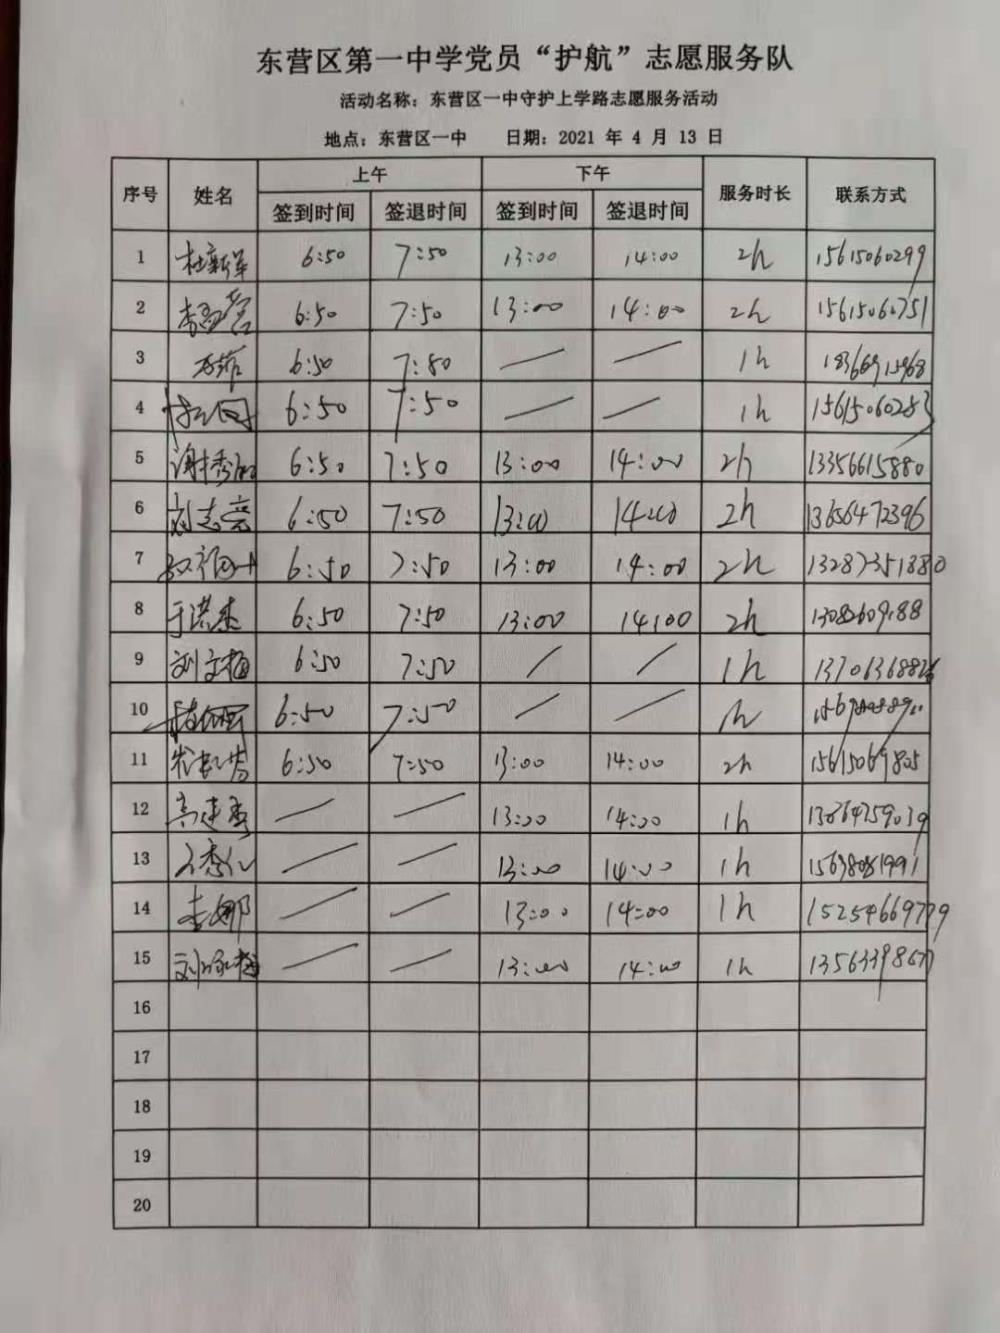 东营区第一中学党员“护航”志愿服务队
活动名称：东营区一中守护上学路志愿服务活动
地点：东营区一中 日期：2021 年 4 月 13 日
序号 姓名 上午 下午 服务时长 联系方式
签到时间 签退时间 签到时间 签退时间
1 杜新军 6:50 7:50 13:00 14:00 2h 15615060299
2 6:50 7:50 13:00 14:00 2h 15615060751
3 6:50 7:50 — — 1h
4 6:50 7:50 — — 1h 15615060283
5 6:50 7:50 13:00 14:00 2h 13356615880
6 刘志亮 6:50 7:50 13:00 14:00 2h 13656472396
7 6:50 7:50 13:00 14:00 2h 13287351880
8 于洪杰 6:50 7:50 13:00 14:00 2h
9 刘文梅 6:50 7:50 / / 1h
10 6:50 7:50 / / 1h
11 6:50 7:50 13:00 14:00 2h 15615069805
12 高建秀 — — 13:00 14:00 1h
13 — — 13:00 14:00 1h
14 李娜 — — 13:00 14:00 1h 15254669779
15 — — 13:00 14:00 1h 13563398677
16
17
18
19
20